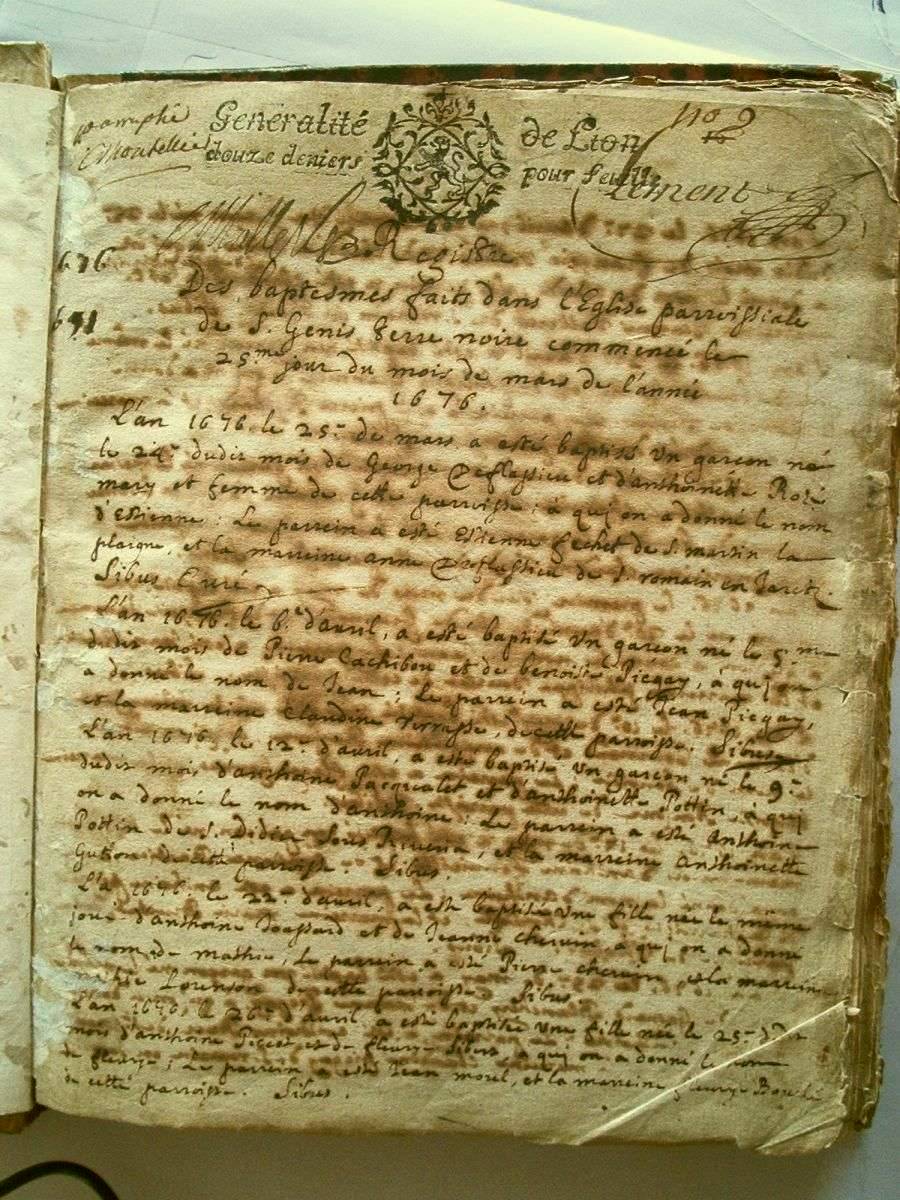 paraphé
Generalité de Lion
douze deniers pour feuille
no 9
1676
Registre
Des baptesmes faits dans l'Eglise parroissiale
de S. Genis terre noire commencé le
25.me jour du mois de mars de l'année
1676.
L'an 1676 le 25.e de mars a esté baptisé un garcon né
le 24.e dudit mois de George et d'anthoinette Rozé
mary et femme de cette parroisse; à qui on a donné le nom
d'Estienne: Le parrein a esté Estienne de S. martin la
plaigne, et la marreine anne de S. romain en Jaretz.
Sibus Curé
L'an 1676. le 6.e d'auril, a esté baptisé un garcon né le 5.me
dudit mois de Pierre Cachibou et de benoiste Picgay, à qui on
a donné le nom de Jean; Le parrein a esté Jean Picgay,
et la marreine Claudine Verrasse, de cette parroisse. Sibus
L'an 1676, le 12.e d'auril, a esté baptisé un garcon né le 9.e
dudit mois d'anthoine Pacqualet et d'anthoinette Pottin, à qui
on a donné le nom d'anthoine: Le parrein a esté anthoine
Pottin de S. Didier sous Riverie, et la marreine anthoinette
de cette parroisse. Sibus.
L'a 1676. le 22.e d'auril, a esté baptisé une fille née le même
jour d'anthoine Joassard et de Jeanne cherein, à qui on a donné
le nom de mathie, Le parrein a esté Pierre cherein et la marreine
mathie Lorenson de cette parroisse. Sibus.
L'an 1676, le 26.e d'auril, a esté baptisée une fille née le 25.e dudit
mois d'anthoine et de fleurye Sibert, à qui on a donné le nom
de fleurye; Le parrein a esté Jean morel, et la marreine fleurye
de cette parroisse. Sibus.